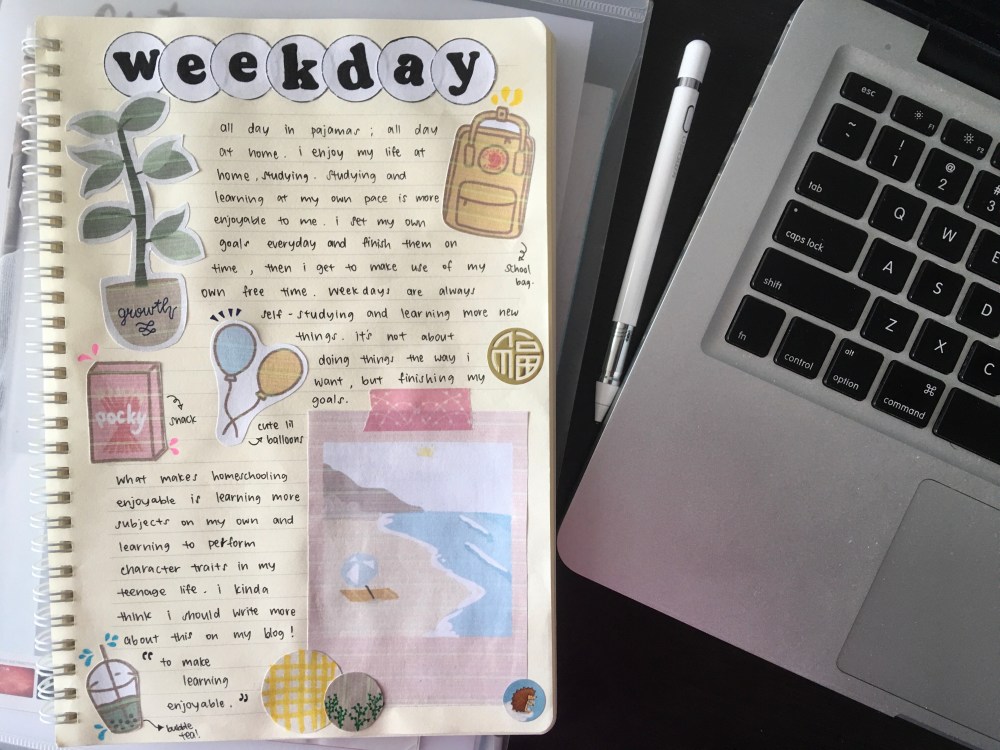 weekday
all day in pajamas ; all day
at home . i enjoy my life at
home , studying . studying and
learning at my own pace is more
enjoyable to me . i set my own
goals everyday and finish them on
time , then i get to make use of my
own free time . weekdays are always
self - studying and learning more new
things . it's not about
doing things the way i
want , but finishing my
goals .
school
bag.
growth
福
pocky
snack
cute lil
balloons
what makes homeschooling
enjoyable is learning more
subjects on my own and
learning to perform
character traits in my
teenage life . i kinda
think i should write more
about this on my blog !
“ to make
learning
enjoyable . ”
bubble
tea!
esc
F1
F2
~
`
!
1
@
2
#
3
tab
Q
W
E
caps lock
A
S
D
shift
Z
X
C
fn
control
alt
option
⌘
command